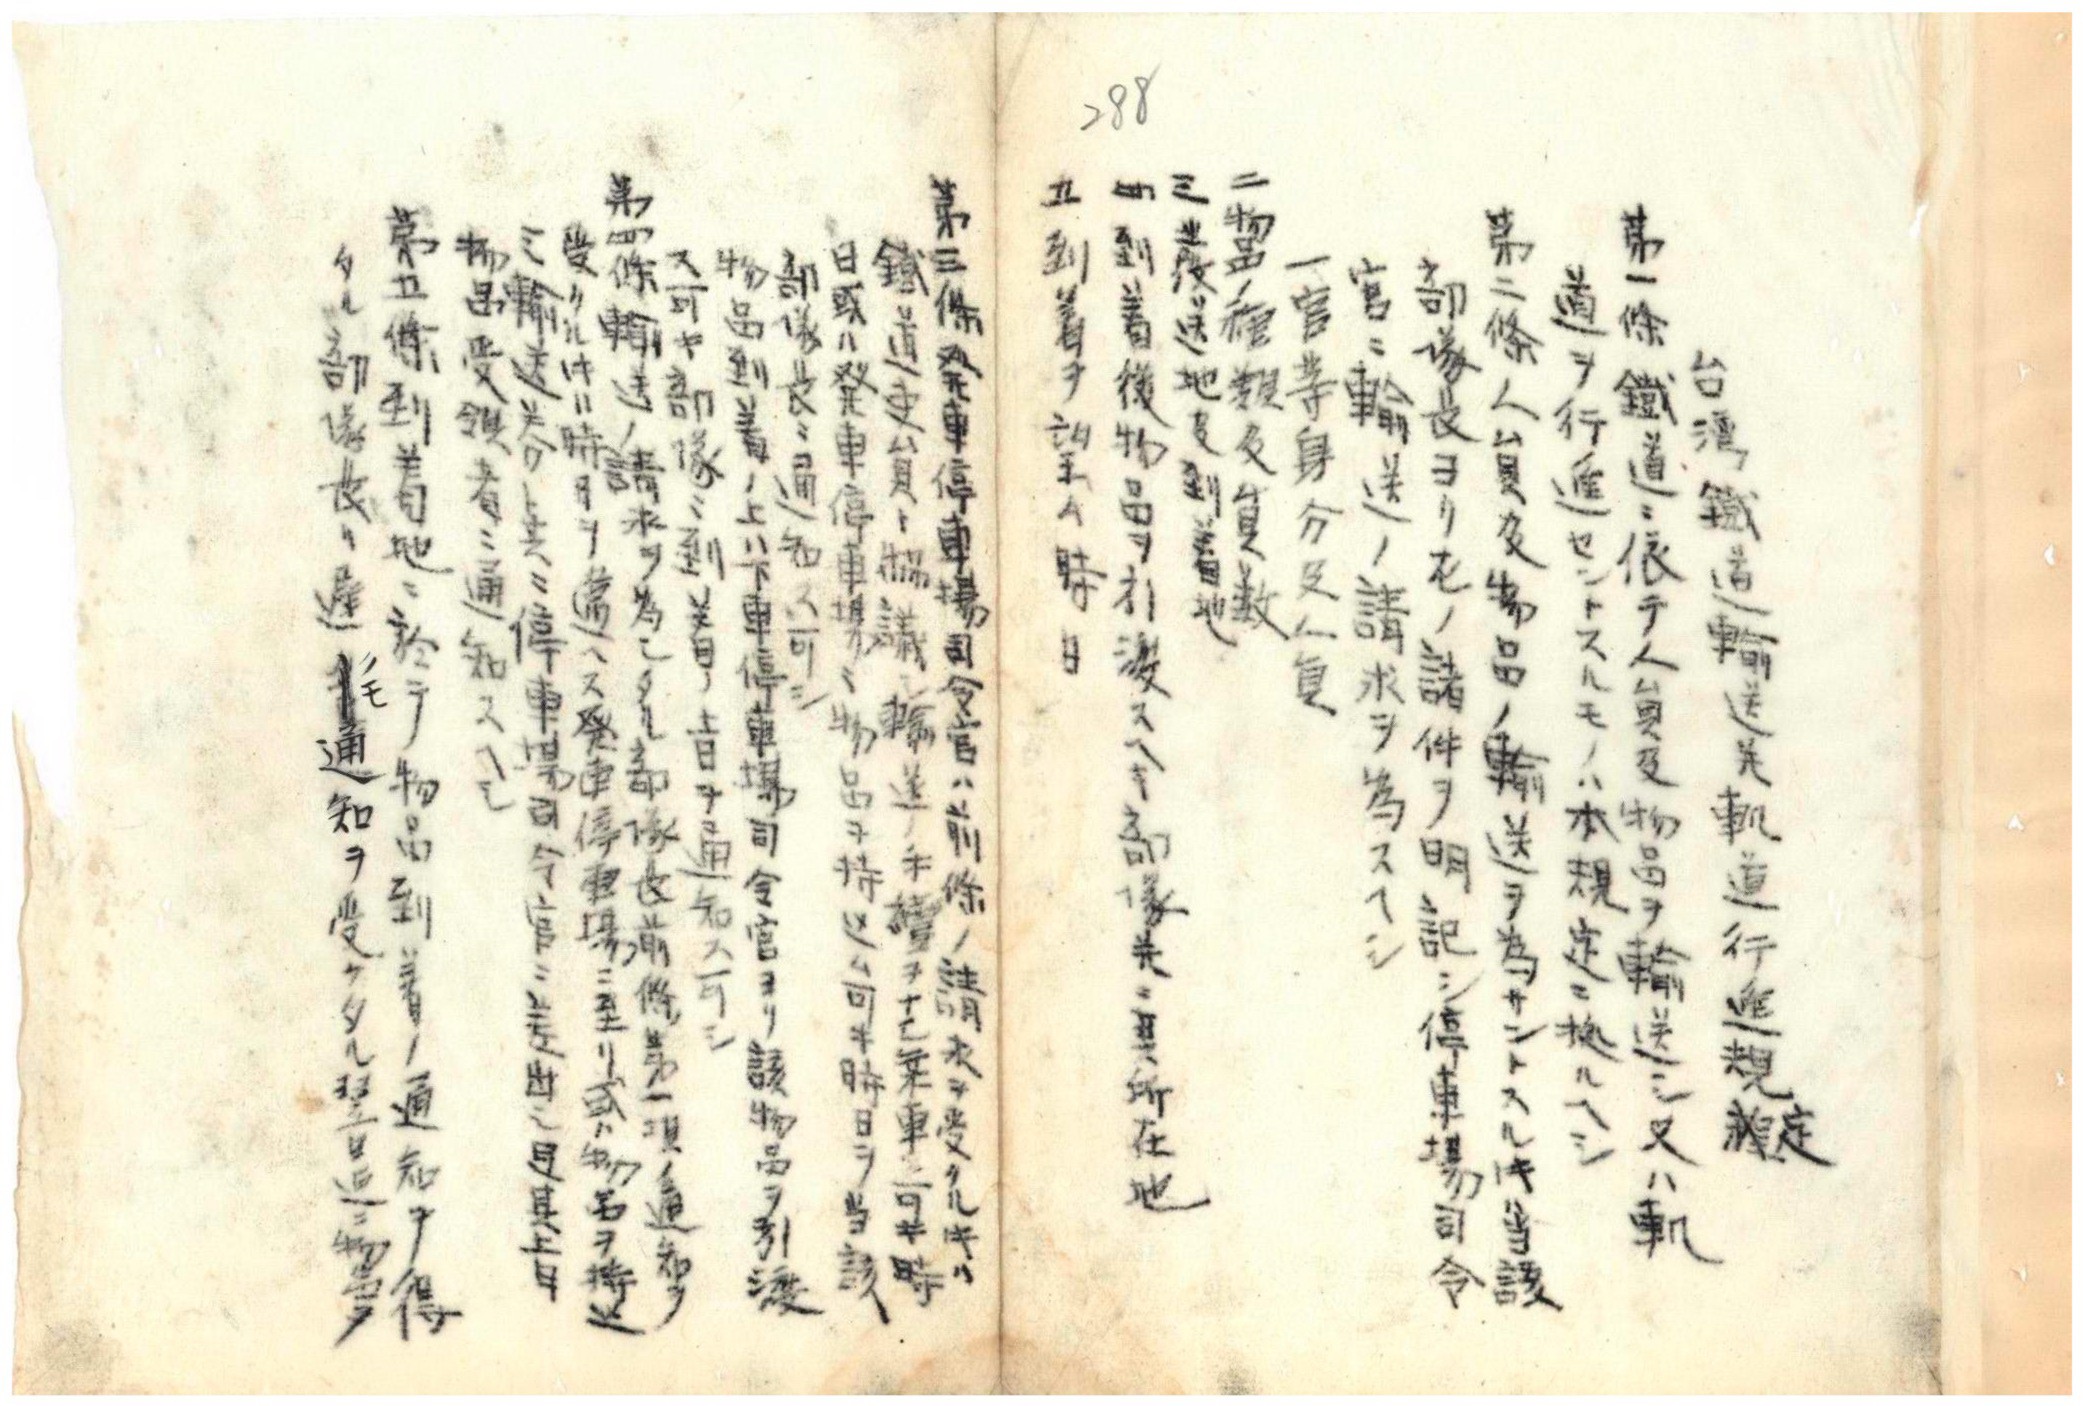 288
台湾鐵道輸送先軌道行進規定
第一條鐵道ニ依テ人員及物品ヲ輸送シ又ハ軌
道ヲ行進セントスルモノハ本規定ニ拠ルヘシ
第二條人員及物品ノ輸送ヲ為サントスル片当該
部隊長ヨリ左ノ諸件ヲ明記シ停車場司令
官ニ輸送ノ請求ヲ為スヘシ
一官等身分及人員
二物品ノ種類及員数
三発送地及到着地
四到着後物品ヲ引渡スヘキ部隊先ニ其所在地
五到着ヲ望ム時日
第三條発車停車場司令官ハ前條ノ請求ヲ受クル片ハ
鐵道吏員ト協議シ輸送ノ手積ヲナシ乗車ス可キ時
日或ハ発車停車場ニ物品ヲ持込ム可キ時日ヲ当該
部隊長ニ通知ス可シ
物品到着ノ上ハ下車停車場司令官ヨリ該物品ヲ引渡
ス可キ部隊ニ到着ノ旨ヲ通知ス可シ
第四條輸送ノ請求ヲ為シタル部隊長前條第一項ノ通知ヲ
受クル片ハ時日ヲ違ヘス発車停車場ニ至リ或ハ物品ヲ持込
ミ輸送券ト共ニ停車場司令官ニ差出シ且其上自
物品受領者ニ通知スヘシ
第五條到着地ニ於テ物品到着ノ通知ヲ得
タル部隊長ハ遅モ通知ヲ受ケタル翌日迄ニ物品ヲ